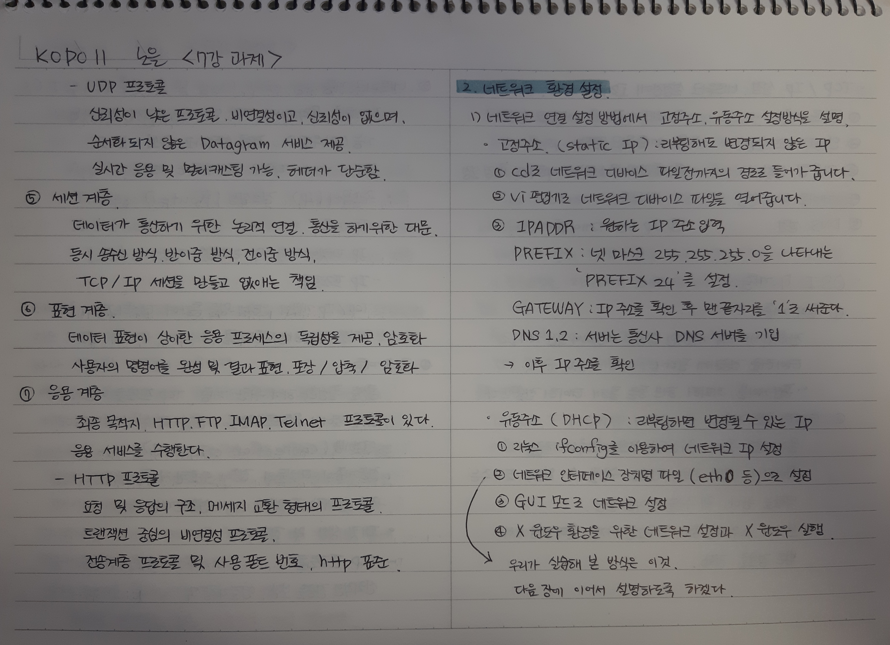 KOPO11 노을 <7강 과제>
- UDP 프로토콜
신뢰성이 낮은 프로토콜. 비연결성이고, 신뢰성이 없으며,
순서화되지 않은 Datagram 서비스 제공.
실시간 응용 및 멀티캐스팅 가능, 헤더가 단순함.
⑤ 세션 계층
데이터가 통신하기 위한 논리적 연결. 통신을 하기위한 대문.
동시 송수신 방식, 반이중 방식, 전이중 방식.
TCP/IP 세션을 만들고 없애는 책임.
⑥ 표현 계층.
데이터 표현이 상이한 응용 프로세스의 독립성을 제공, 암호화
사용자의 명령어를 완성 및 결과 표현. 포장 / 압축 / 암호화
⑦ 응용 계층
최종 목적지. HTTP. FTP. IMAP. Telnet 프로토콜이 있다.
응용 서비스를 수행한다.
- HTTP 프로토콜
요청 및 응답의 구조, 메세지 교환 형태의 프로토콜.
트랜잭션 중심의 비연결성 프로토콜.
전송계층 프로토콜 및 사용 포트 번호, http 표준.
2. 네트워크 환경 설정.
1) 네트워크 연결 설정 방법에서 고정주소, 유동주소 설정방식으로 설명.
· 고정주소. (static Ip) : 리부팅해도 변경되지 않은 IP
① cd로 네트워크 디바이스 파일전까지의 경로로 들어가 줍니다.
② vi 편집기로 네트워크 디바이스 파일을 열어줍니다.
③ IPADDR : 원하는 IP 주소 입력
PREFIX : 넷 마스크 255.255.255.0을 나타내는
'PREFIX 24'를 설정.
GATEWAY : Ip 주소를 확인 후 맨 끝자리를 '1'로 써준다.
DNS 1,2 : 서버는 통신사 DNS 서버를 기입
→ 이후 IP 주소를 확인
· 유동주소 (DHCP) : 리부팅하면 변경될 수 있는 Ip
① 리눅스 ifconfig를 이용하여 네트워크 Ip 설정
② 네트워크 인터페이스 장치명 파일 (eth0 등)으로 설정
③ GUI 모드로 네트워크 설정
④ X 윈도우 환경을 위한 네트워크 설정과 X 윈도우 실행.
우리가 실습해 본 방식은 이것.
다음 장에 이어서 설명하도록 하겠다.